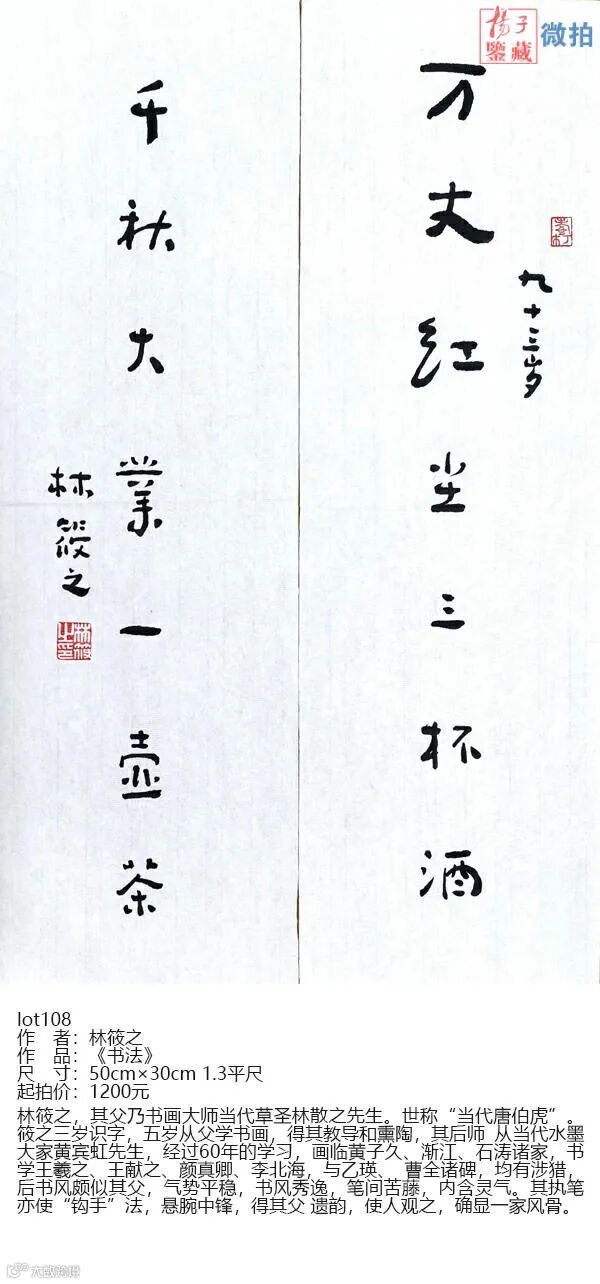 楊子
鑒藏
微拍
万丈红尘三杯酒
九十三岁
千秋大業一壶茶
林筱之
林筱之印
lot108
作 者：林筱之
作 品：《书法》
尺 寸：50cm×30cm 1.3平尺
起拍价：1200元
林筱之，其父乃书画大师当代草圣林散之先生。世称“当代唐伯虎”。
筱之三岁识字，五岁从父学书画，得其教导和熏陶，其后师 从当代水墨
大家黄宾虹先生，经过60年的学习，画临黄子久、渐江、石涛诸家，书
学王羲之、王献之、颜真卿、李北海，与乙瑛、 曹全诸碑，均有涉猎，
后书风颇似其父，气势平稳，书风秀逸，笔间苦藤，内含灵气。其执笔
亦使“钩手”法，悬腕中锋，得其父 遗韵，使人观之，确显一家风骨。
大数跨境